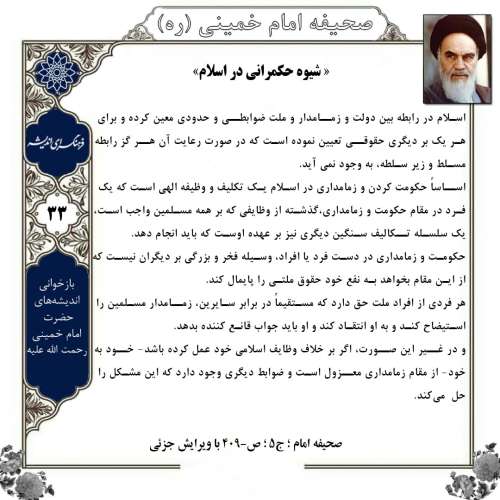 صحیفه امام خمینی (ره)
« شیوه حکمرانی در اسلام»
اسلام در رابطه بین دولت و زمامدار و ملت ضوابطی و حدودی معین کرده و برای
هر یک بر دیگری حقوقی تعیین نموده است که در صورت رعایت آن هر گز رابطه
مسلط و زیر سلطه، به وجود نمی آید.
اساساً حکومت کردن و زمامداری در اسلام یک تکلیف و وظیفه الهی است که یک
فرد در مقام حکومت و زمامداری،گذشته از وظایفی که بر همه مسلمین واجب است،
یک سلسله تکالیف سنگین دیگری نیز بر عهده اوست که باید انجام دهد.
حکومت و زمامداری در دست فرد یا افراد، وسیله فخر و بزرگی بر دیگران نیست که
از این مقام بخواهد به نفع خود حقوق ملتی را پایمال کند.
هر فردی از افراد ملت حق دارد که مستقیماً در برابر سایرین، زمامدار مسلمین را
استیضاح کند و به او انتقاد کند و او باید جواب قانع کننده بدهد.
و در غیر این صورت، اگر بر خلاف وظایف اسلامی خود عمل کرده باشد- خود به
خود- از مقام زمامداری معزول است و ضوابط دیگری وجود دارد که این مشکل را
حل می‌کند.
صحیفه امام ؛ ج۵ ؛ ص-۴۰۹ با ویرایش جزئی
۳۳
بازخوانی
اندیشه‌های
حضرت
امام خمینی
رحمت الله علیه